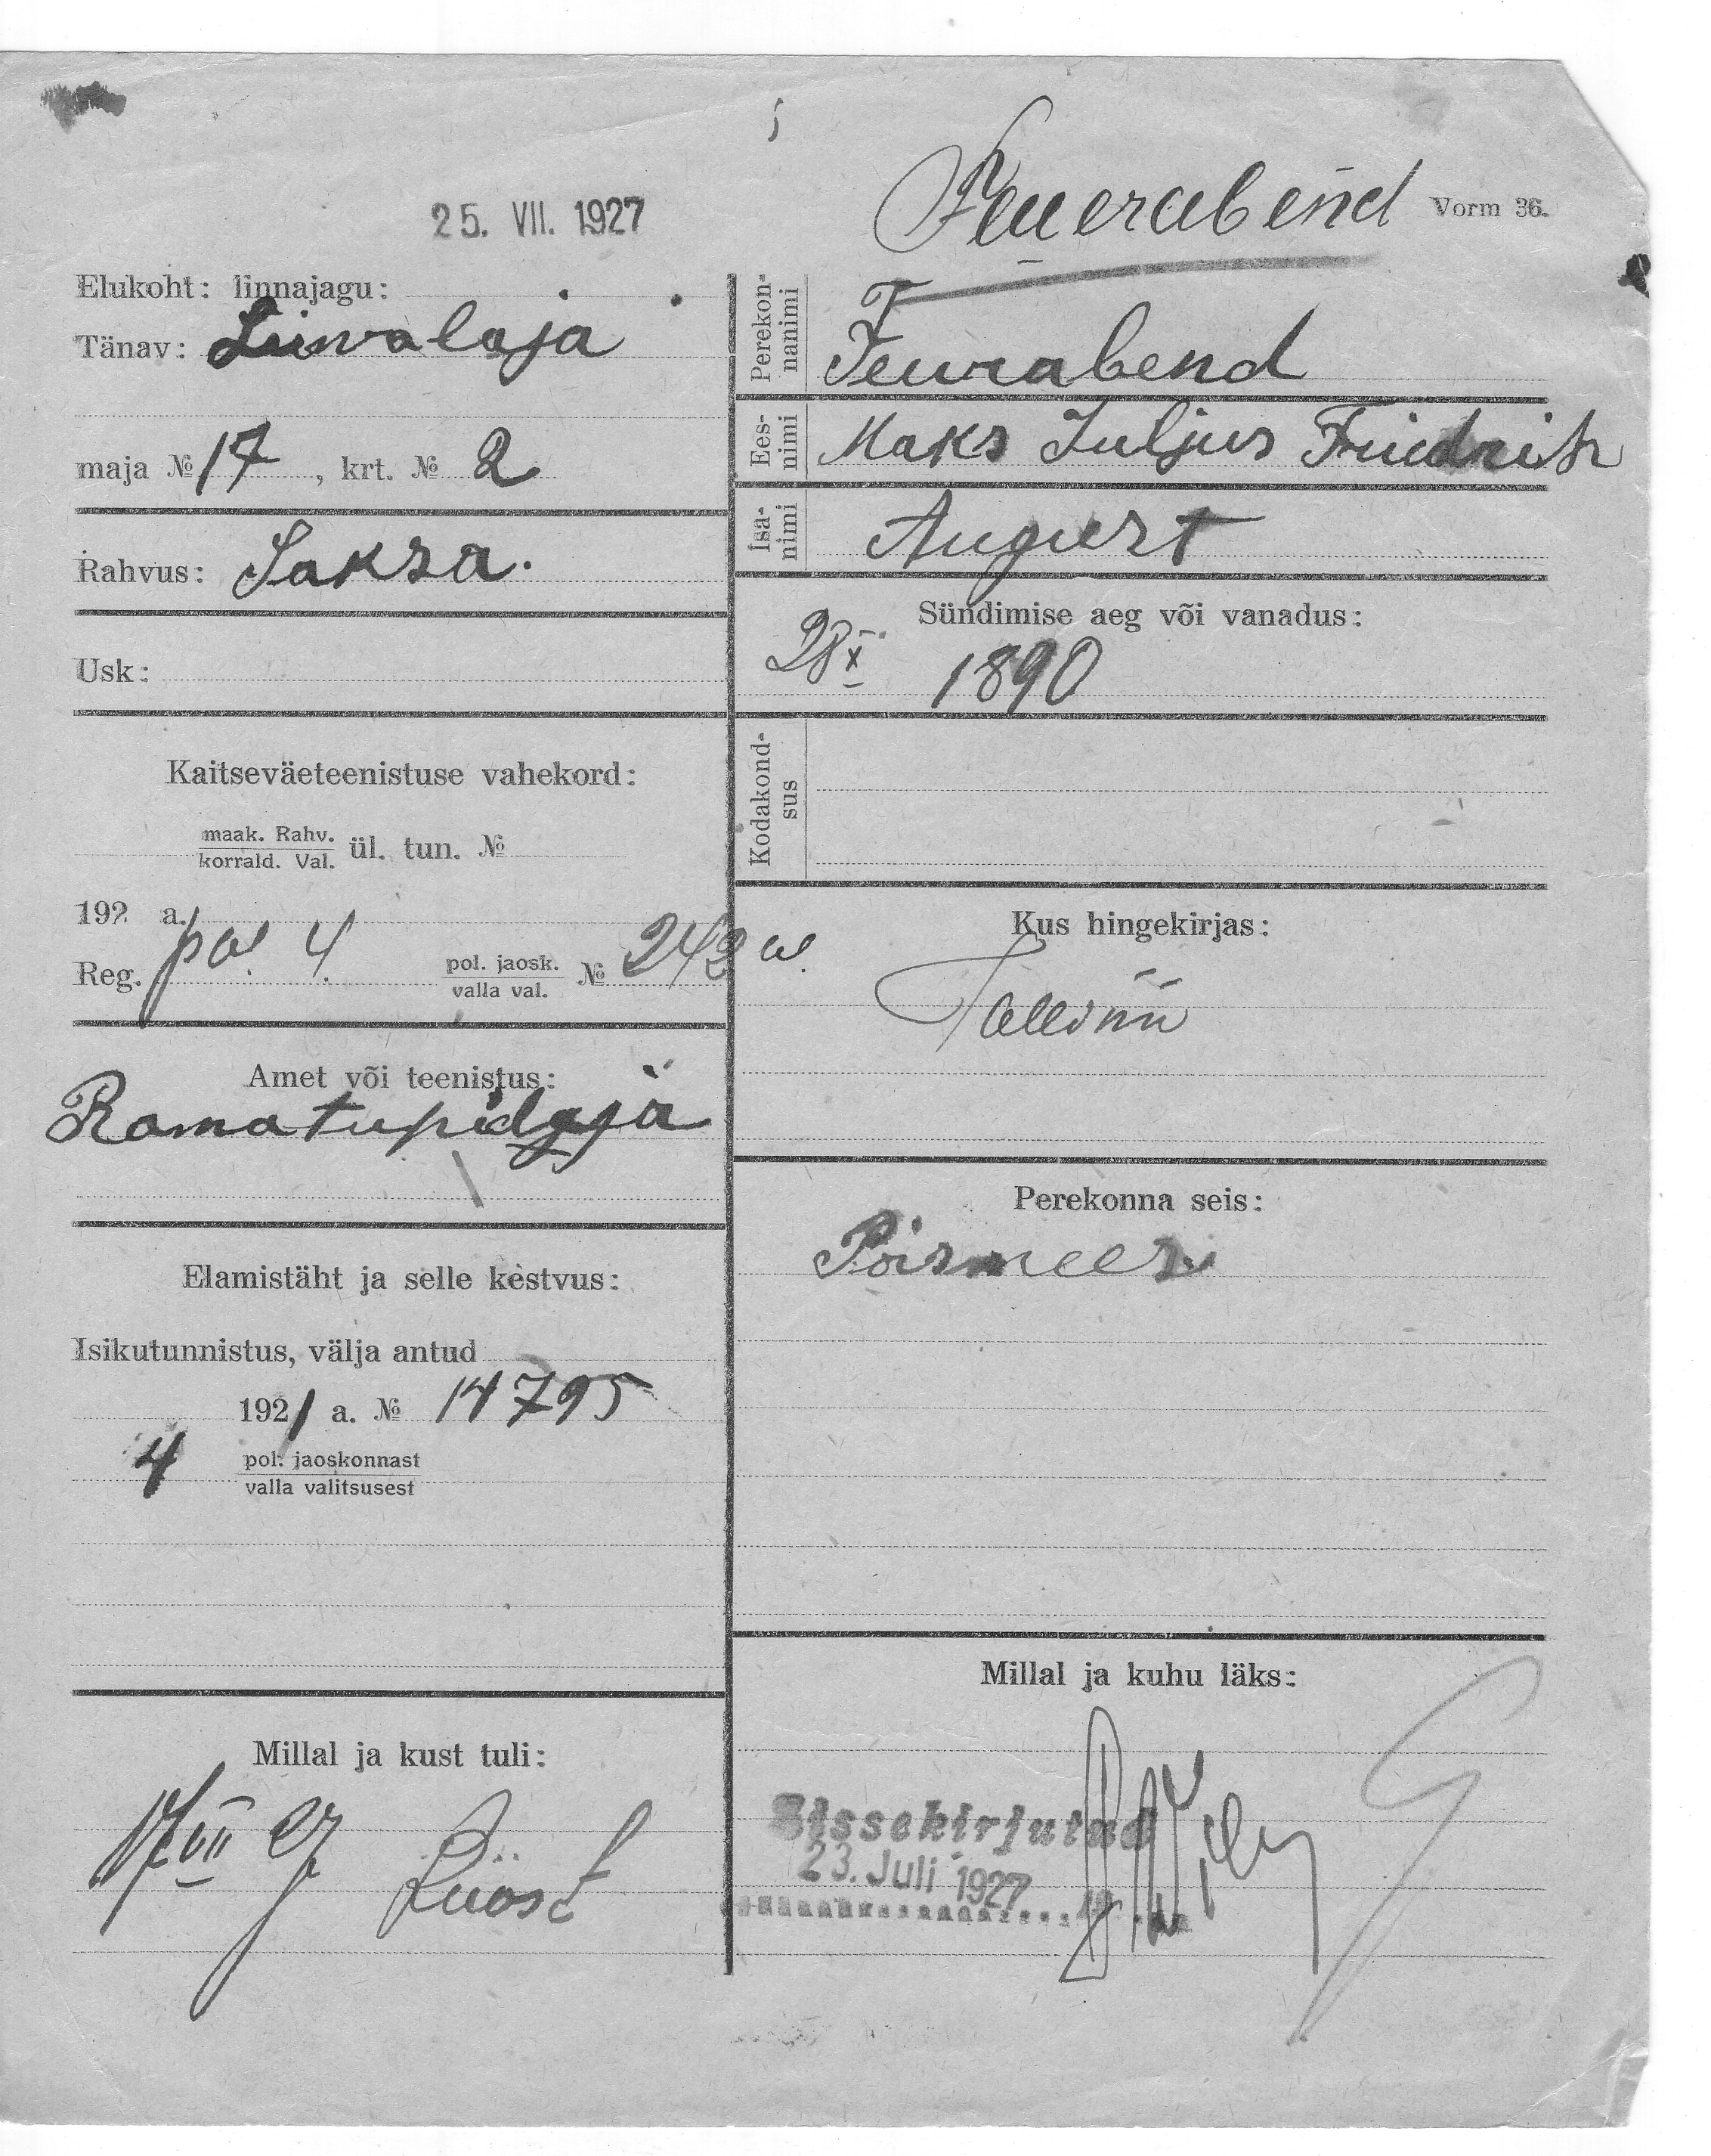 Feuerabend
Vorm 36.
25. VII. 1927
Elukoht: linnajagu:
Tänav: Liivalaja
maja № 17, krt. № 2
Rahvus: Saksa.
Usk:
Kaitseväeteenistuse vahekord:
maak. Rahv.
korrald. Val. ül. tun. №
192 a.
Reg. 4. pol. jaosk.
valla val. № 242
Amet või teenistus:
Ramatupidaja
Elamistäht ja selle kestvus:
Isikutunnistus, välja antud
1921 a. № 14795
4 pol. jaoskonnast
valla valitsusest
Millal ja kust tuli:
17/VII 27
Perekon-
nanimi
Feurabend
Ees-
nimi
Maks Juljus Friedrich
Isa-
nimi
August
Sündimise aeg või vanadus:
28 X 1890
Kodakond-
sus
Kus hingekirjas:
Tallinn
Perekonna seis:
Poismees
Millal ja kuhu läks:
Sissekirjutud
23. Juli 1927